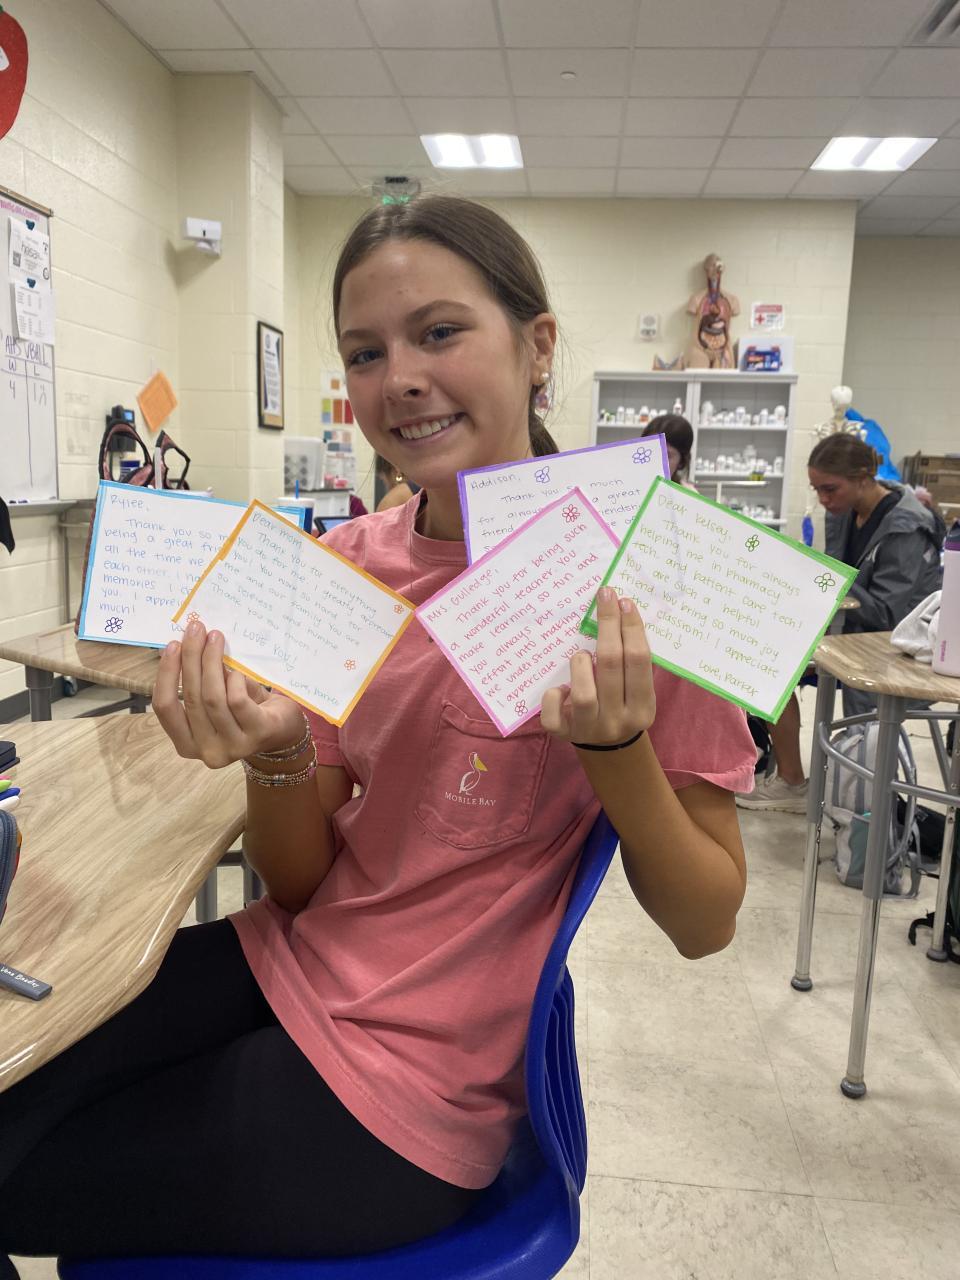 hosa
AHS VBALL
W L
4
Rylee,
Thank you so m
being a great fri
all the time we
each other. I
memories. I
you. I appreci
much!
Dear mom,
Thank you for everything
you do for me. I greatly appreciate
you! You work so hard for
me and our family. You are
so selfless and humble.
Thank you so much!
I LOVE YOU!
Love, Parker
Addison,
Thank you so much
for always a great
friend
Mrs. Gulledge,
Thank you for being such
a wonderful teacher. You
make learning so fun and
you always put so much
effort into making
we understand the
I appreciate you
Dear Kelsey,
Thank you for always
helping me in pharmacy
tech. and patient care tech!
You are such a helpful
friend. You bring so much joy
to the classroom! I appreciate
much!
Love, Parker
MOBILE BAY
Vera Bradley